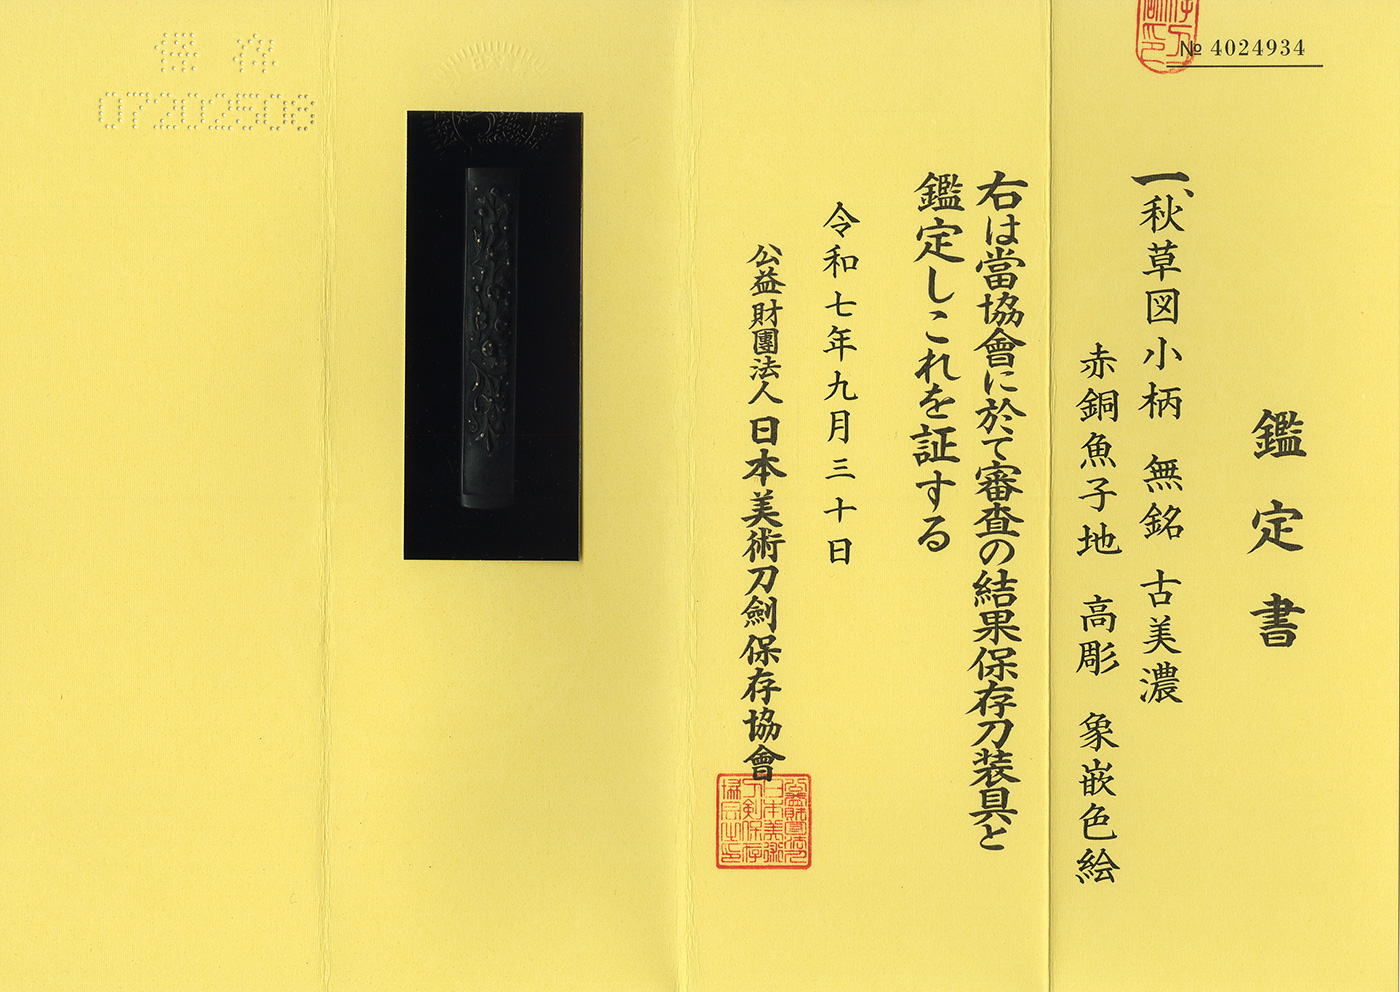 № 4024934
鑑定書
一、秋草図小柄 無銘 古美濃
赤銅魚子地 高彫 象嵌色絵
右は當協會に於て審査の結果保存刀装具と
鑑定しこれを証する
令和七年九月三十日
公益財團法人 日本美術刀劍保存協會
保存
07202508